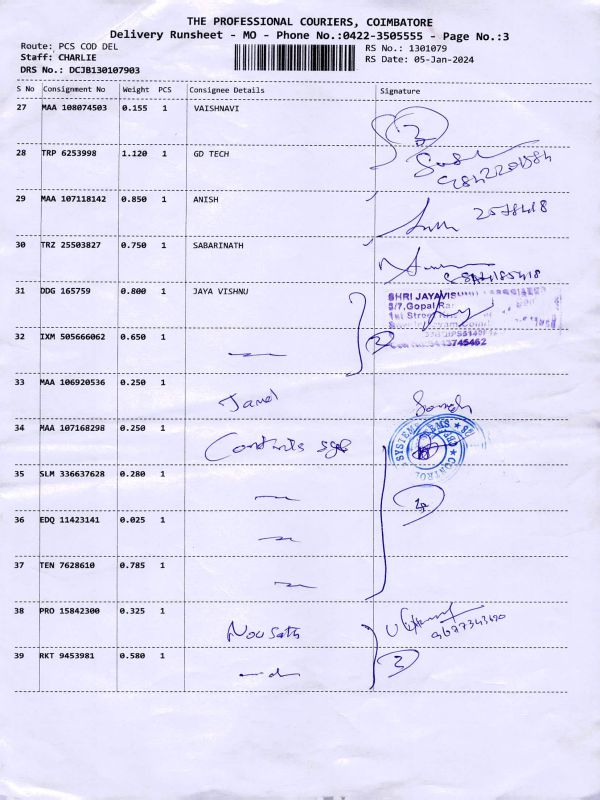 THE PROFESSIONAL COURIERS, COIMBATORE
Delivery Runsheet - MO - Phone No.:0422-3505555 - Page No.:3
Route: PCS COD DEL RS No.: 1301079
Staff: CHARLIE RS Date: 05-Jan-2024
DRS No.: DCJB130107903
S No Consignment No Weight PCS Consignee Details Signature
27 MAA 108074503 0.155 1 VAISHNAVI
28 TRP 6253998 1.120 1 GD TECH
29 MAA 107118142 0.850 1 ANISH
30 TRZ 25503827 0.750 1 SABARINATH
31 DDG 165759 0.800 1 JAYA VISHNU
SHRI JAYAVISHNU
5/7,Gopal
1st Street
32 IXM 505666062 0.650 1 2
33 MAA 106920536 0.250 1
34 MAA 107168298 0.250 1
SYSTEMS
CONTROL
35 SLM 336637628 0.280 1
36 EDQ 11423141 0.025 1
37 TEN 7628610 0.785 1
38 PRO 15842300 0.325 1 Nousath
39 RKT 9453981 0.580 1 2